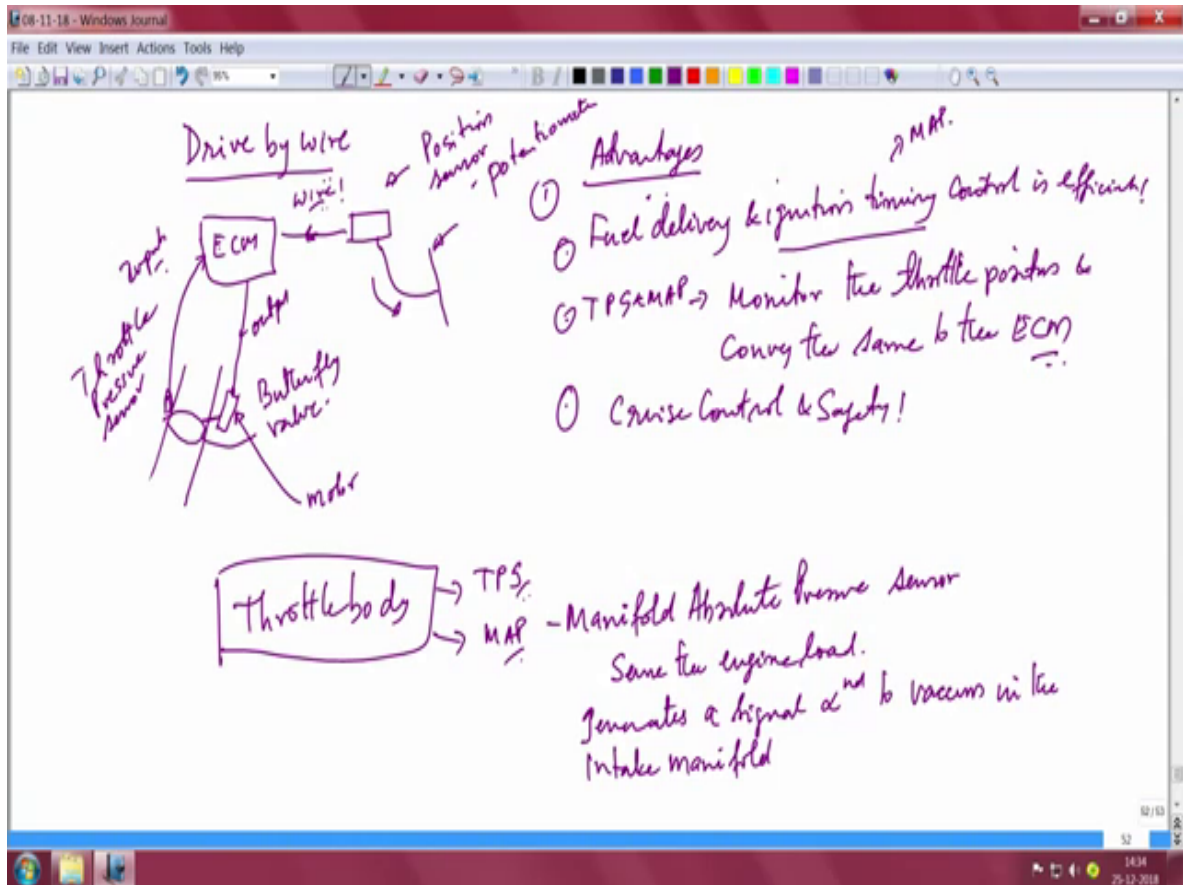 08-11-18 - Windows Journal
File Edit View Insert Actions Tools Help
95%
Drive by wire
wire!
Position
sensor
- potentiometer
ECM
Input
output
Throttle
Pressure
sensor
Butterfly
valve.
motor
Advantages
MAP.
Fuel delivery & ignition timing control is efficient!
TPS & MAP → Monitor the throttle position &
Convey the same to the ECM
Cruise Control & Safety!
Throttle body
→ TPS
→ MAP - Manifold Absolute Pressure sensor
Sense the engine load.
generates a signal ∝nd to vaccum in the
intake manifold
52/53
52
14:34
25-12-2018